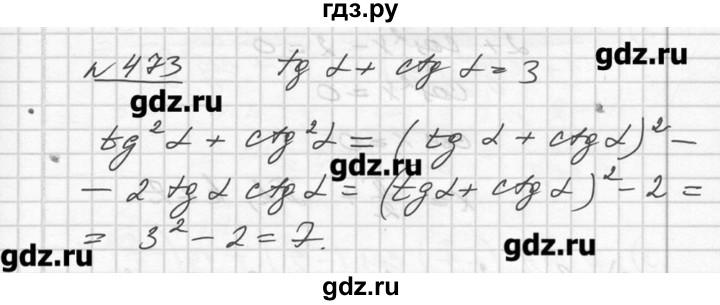 гдз.ру
№473 tg α + ctg α = 3
gdz.ru
gdz.ru
tg²α + ctg²α = (tg α + ctg α)² –
gdz.ru
– 2 tg α ctg α = (tg α + ctg α)² – 2 =
= 3² – 2 = 7.
gdz.ru
gdz.ru
gdz.ru